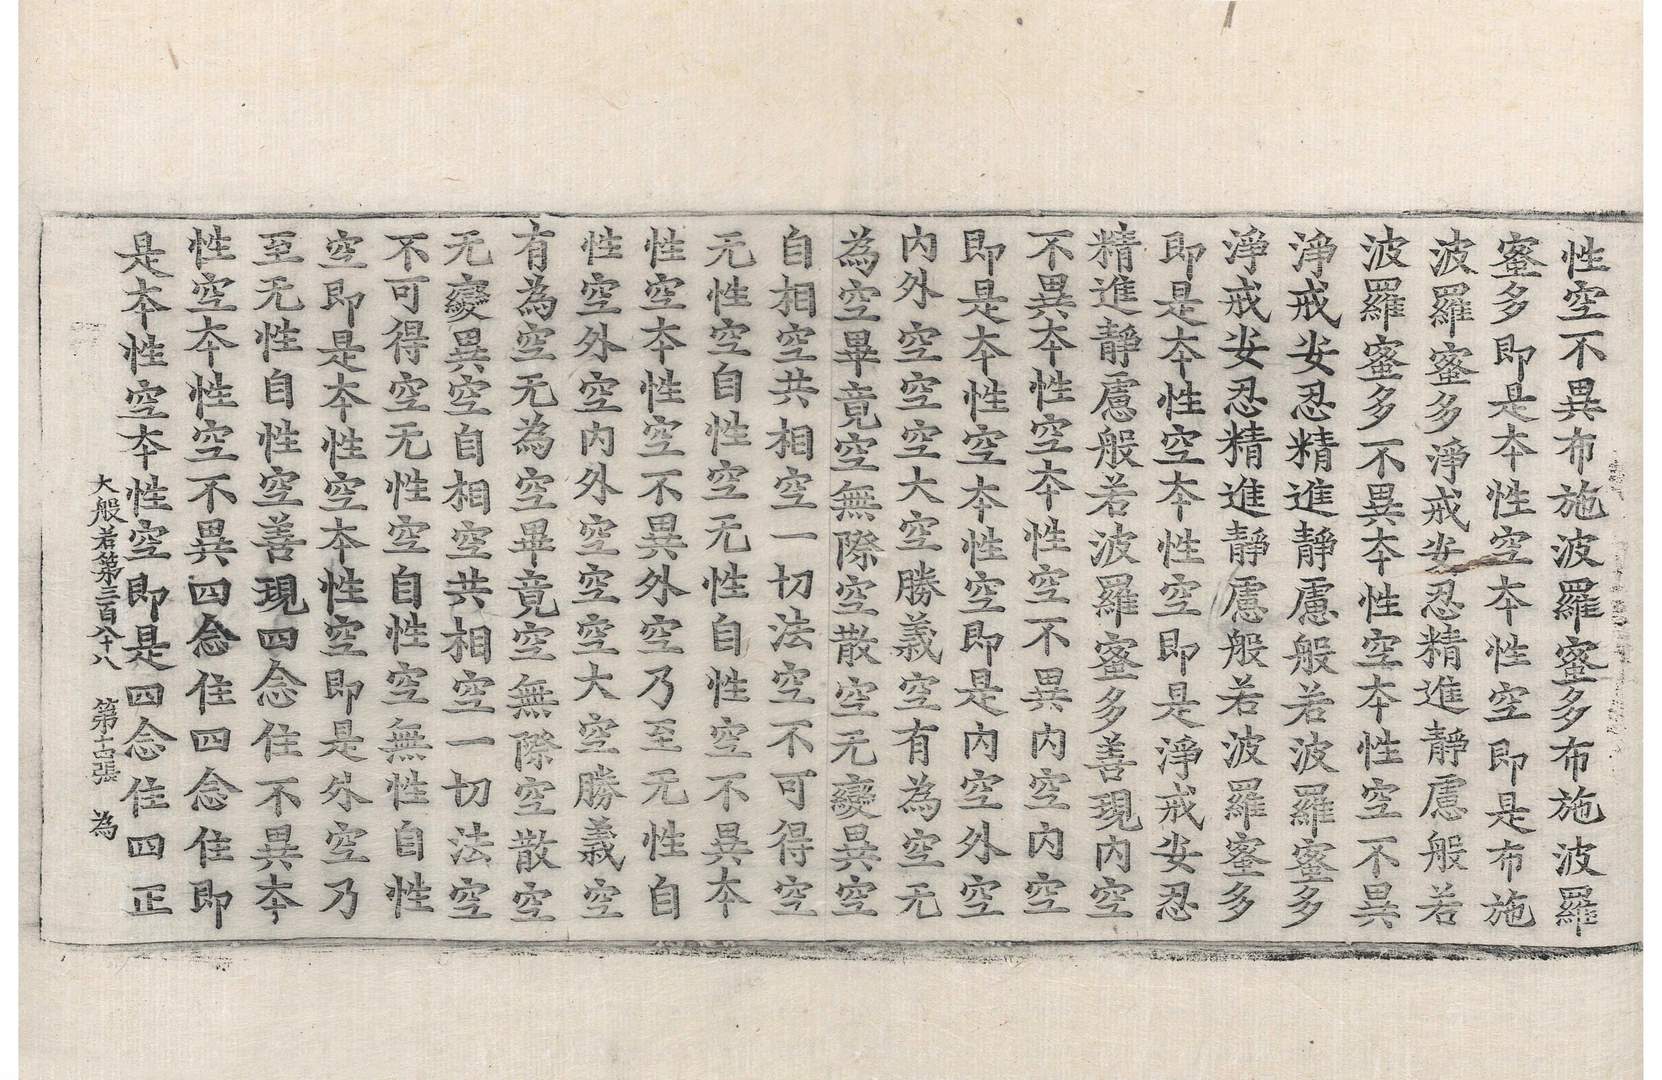 性空不異布施波羅蜜多布施波羅
蜜多即是夲性空夲性空即是布施
波羅蜜多淨戒安忍精進靜慮般若
波羅蜜多不異夲性空夲性空不異
淨戒安忍精進靜慮般若波羅蜜多
淨戒安忍精進靜慮般若波羅蜜多
即是夲性空夲性空即是淨戒安忍
精進靜慮般若波羅蜜多善現內空
不異夲性空夲性空不異內空內空
即是夲性空夲性空即是內空外空
內外空空空大空勝義空有為空无
為空畢竟空無際空散空无變異空
自相空共相空一切法空不可得空
无性空自性空无性自性空不異夲
性空夲性空不異外空乃至无性自
性空外空內外空空空大空勝義空
有為空无為空畢竟空無際空散空
无變異空自相空共相空一切法空
不可得空无性空自性空無性自性
空即是夲性空夲性空即是外空乃
至无性自性空善現四念住不異夲
性空夲性空不異四念住四念住即
是夲性空夲性空即是四念住四正
大般若第三百八十八 第十四張 為